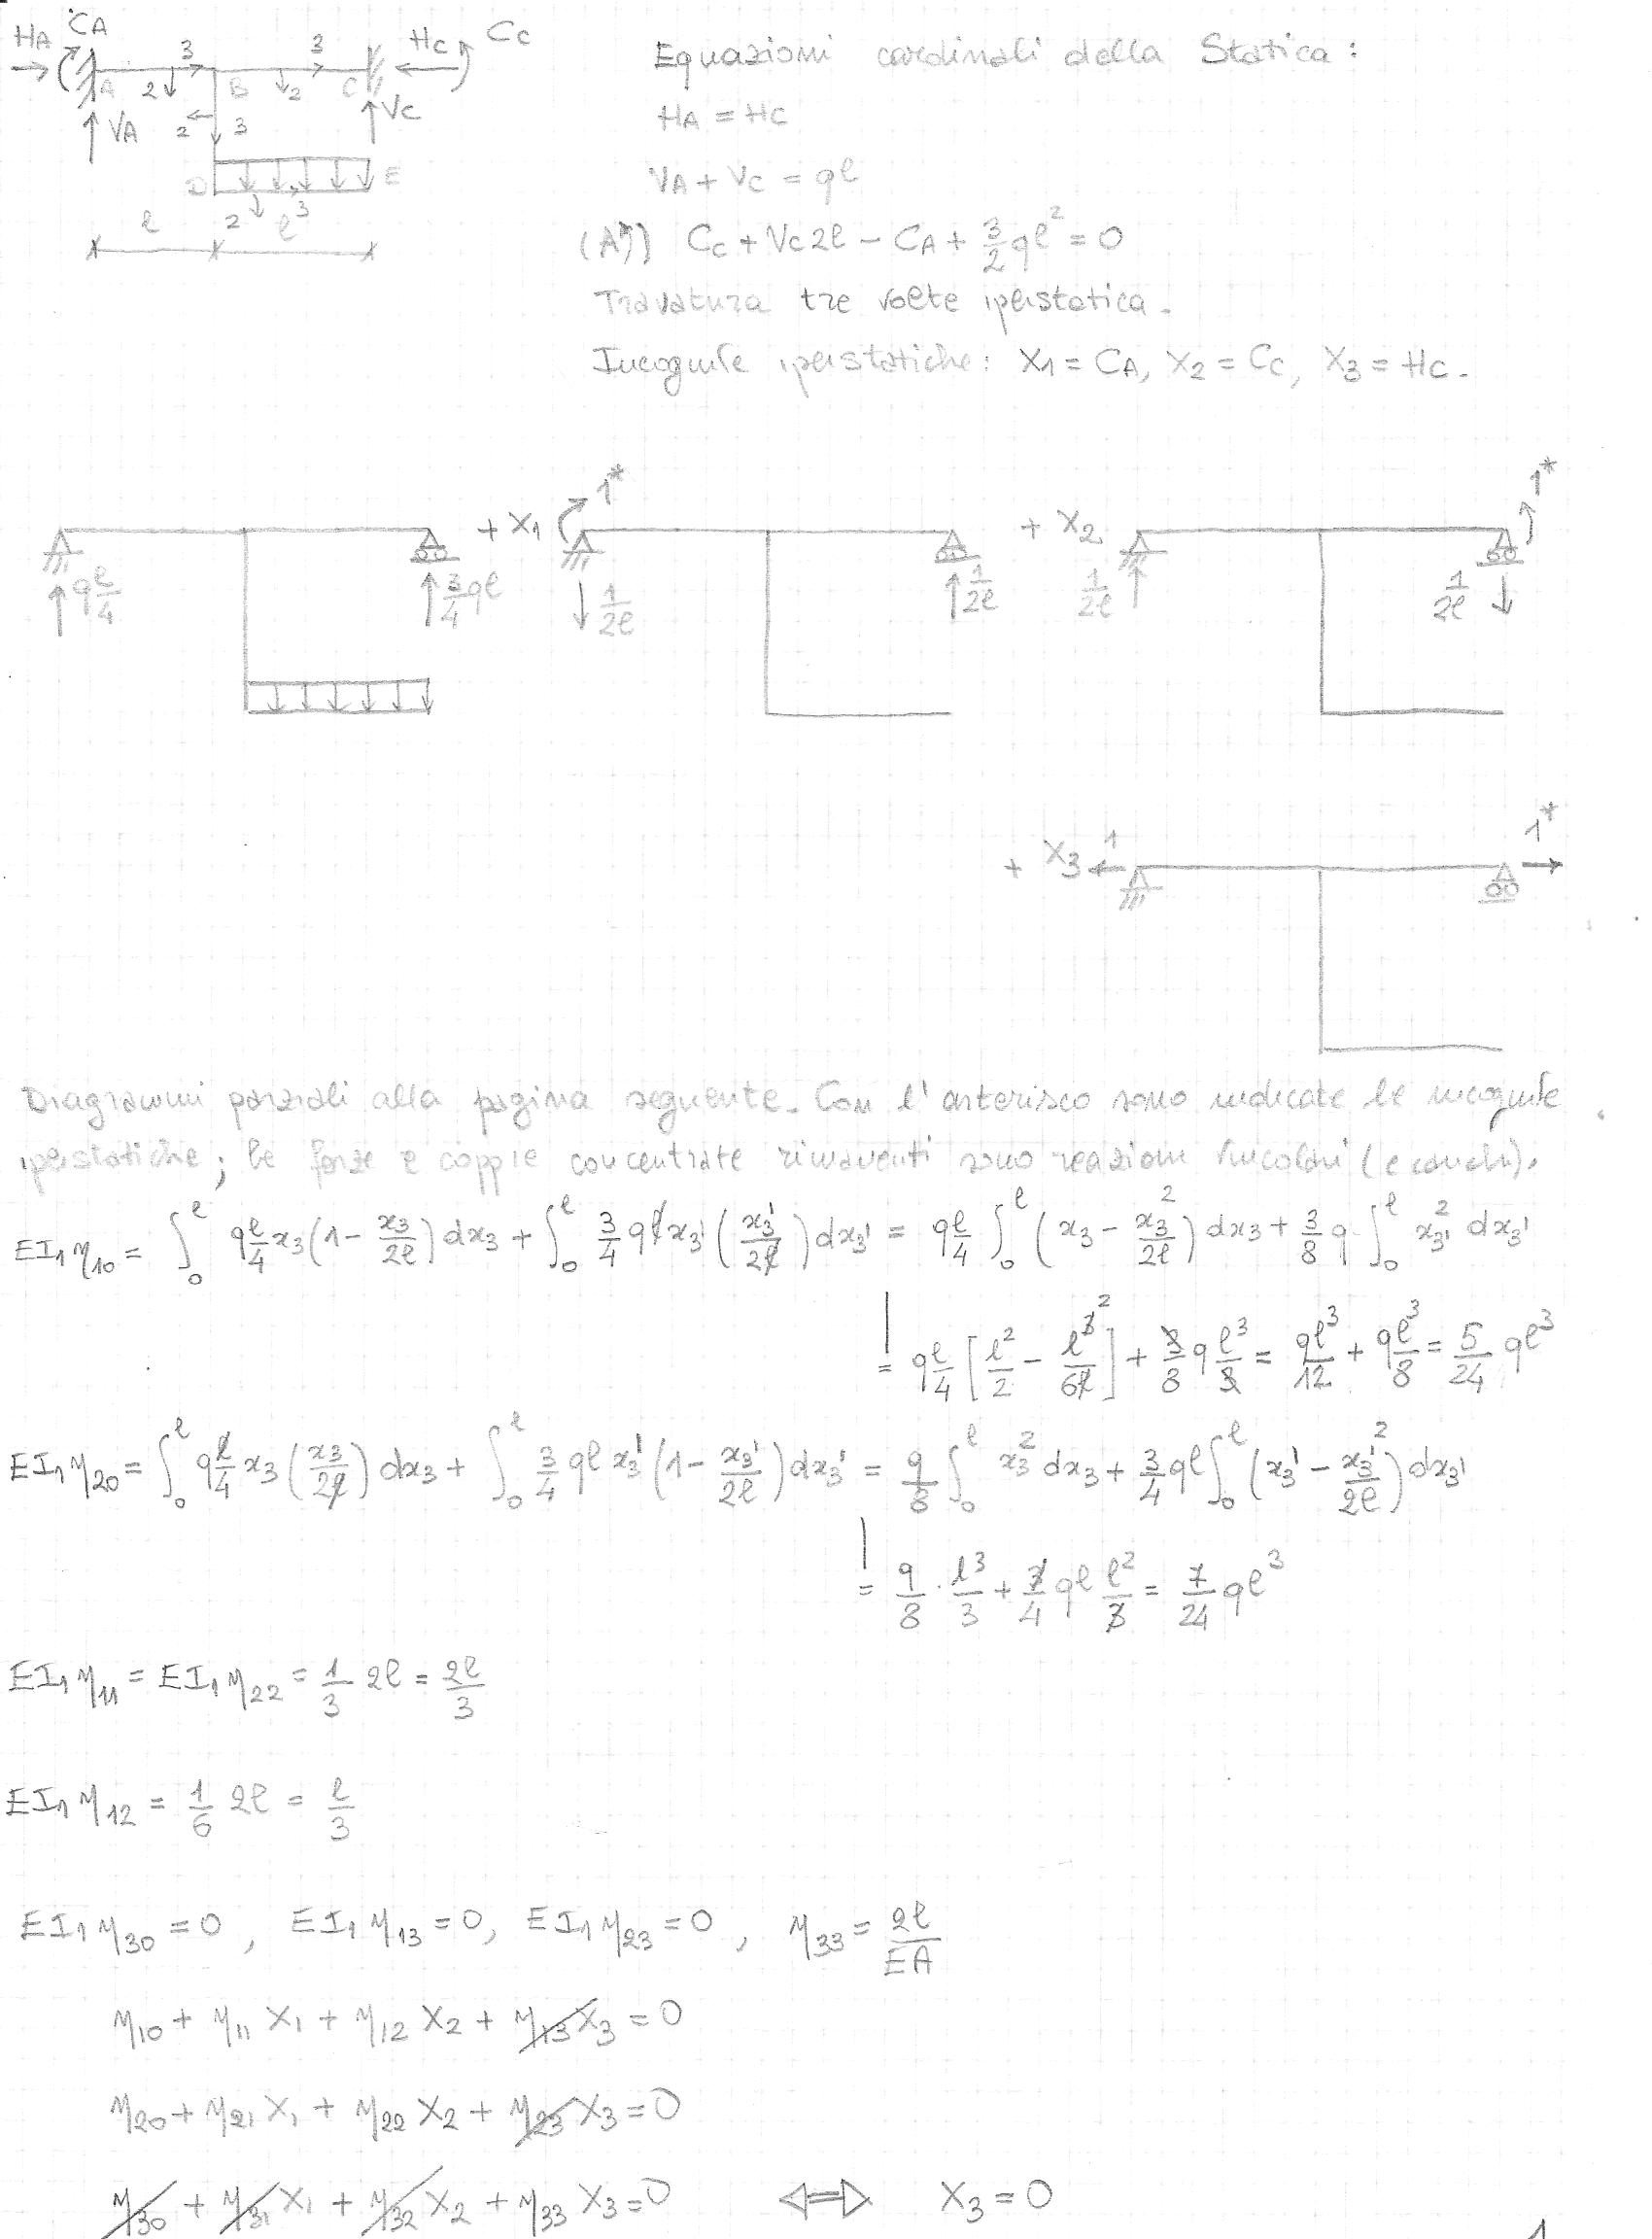 HA CA 3 3 HC CC
2 A B 2 C
VA 2 3 VC
D E
2 3
l l
Equazioni cardinali della Statica:
HA = HC
VA + VC = ql
(A↷) CC + VC 2l - CA + 3/2 ql² = 0
Travatura tre volte iperstatica.
Incognite iperstatiche: X1 = CA, X2 = CC, X3 = HC.
+ X1 1* + X2 1*
ql/4 3/4 ql 1/2l 1/2l 1/2l 1/2l
+ X3 1 1*
Diagrammi parziali alla pagina seguente. Con l'asterisco sono indicate le incognite
iperstatiche; le forze e coppie concentrate rimanenti sono reazioni vincolari (e carichi).
EI1 η10 = ∫0^l ql/4 x3 (1 - x3/2l) dx3 + ∫0^l 3/4 ql x3' (x3'/2l) dx3' = ql/4 ∫0^l (x3 - x3²/2l) dx3 + 3/8 q ∫0^l x3'² dx3'
= ql/4 [l²/2 - l³/6l] + 3/8 q l³/3 = ql³/12 + ql³/8 = 5/24 ql³
EI1 η20 = ∫0^l ql/4 x3 (x3/2l) dx3 + ∫0^l 3/4 ql x3' (1 - x3'/2l) dx3' = q/8 ∫0^l x3² dx3 + 3/4 ql ∫0^l (x3' - x3'²/2l) dx3'
= q/8 · l³/3 + 3/4 ql l²/3 = 7/24 ql³
EI1 η11 = EI1 η22 = 1/3 2l = 2l/3
EI1 η12 = 1/6 2l = l/3
EI1 η30 = 0, EI1 η13 = 0, EI1 η23 = 0, η33 = 2l/EA
η10 + η11 X1 + η12 X2 + η13 X3 = 0
η20 + η21 X1 + η22 X2 + η23 X3 = 0
η30 + η31 X1 + η32 X2 + η33 X3 = 0 ⟺ X3 = 0
1